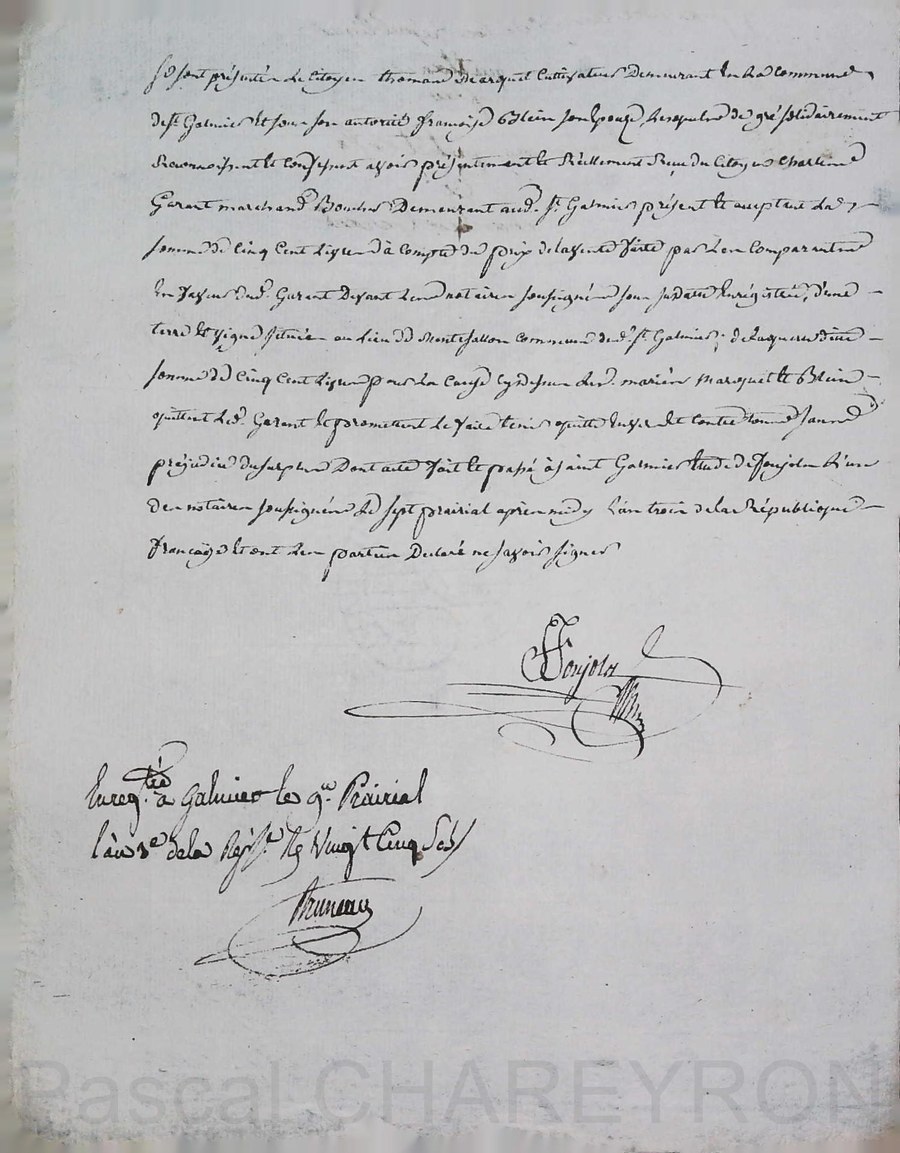 Se sont présentés le Citoyen thomas Marquet Cultivateur Demeurant en la commune
de st Galmier Et sous son autorité françoise Blein son Epouze, lesquels de gré solidairement
Reconnoissent Et Confessent avoir présentement Et Réellement Reçu du Citoyen
Garant marchand Boucher Demeurant aud. st. Galmier présent Et acceptant La
somme de Cinq Cent Livres à Compte du prix de la vente faite par les Comparants
En faveur dud. Garant Devant les notaires soussignés sous sa date Enrégistrée, d'une
terre Et vigne située au lieu de Commune dud. st. Galmier; de laquelle ditte
somme de Cinq Cent Livres pour la Cause Cy dessus lesd. mariés Marquet Et Blein
quittent led. Garant Et promettent Le faire tenir quitte Envers Et Contre tous sans
préjudice du surplus Dont acte fait Et passé à saint Galmier Etude de Ponjols L'un
des notaires soussignés Le sept prairial après midy L'an trois de la République
française Et ont Les parties Déclaré ne savoir signer
Ponjols
Enregtré à Galmier le 9e. Prairial
l'an 3e de la Répe. Rç Vingt Cinq Sols
Bruneau
Pascal CHAREYRON